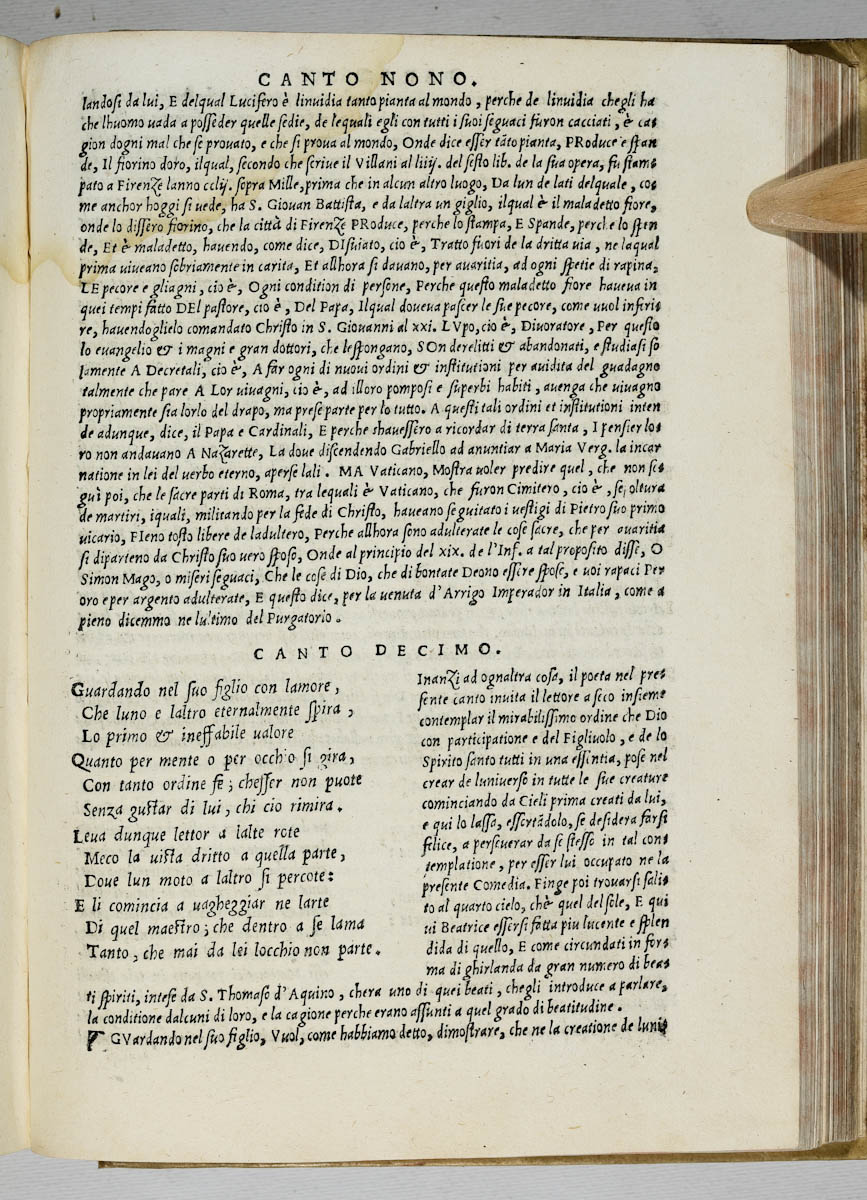 CANTO NONO.
landosi da lui, E delqual Lucifero è linuidia tanto pianta al mondo, perche de linuidia chegli ha
che lhuomo uada a posseder quelle sedie, de lequali egli con tutti i suoi seguaci furon cacciati, è ca=
gion dogni mal che se prouato, e che si proua al mondo, Onde dice esser tãto pianta, PRoduce e span
de, Il fiorino doro, ilqual, secondo che scriue il Villani al liiij. del sesto lib. de la sua opera, fu stam=
pato a Firenze lanno cclij. sopra Mille, prima che in alcun altro luogo, Da lun de lati delquale, co=
me anchor hoggi si uede, ha S. Giouan Battista, e da laltra un giglio, ilqual è il maladetto fiore,
onde lo dissero fiorino, che la città di Firenze PRoduce, perche lo stampa, E Spande, perche lo spen
de, Et è maladetto, hauendo, come dice, DIsuiato, cio è, Tratto fuori de la dritta uia, ne laqual
prima uiueano sobriamente in carita, Et allhora si dauano, per auaritia, ad ogni spetie di rapina,
LE pecore e gliagni, cio è, Ogni condition di persone, Perche questo maladetto fiore haueua in
quei tempi fatto DEl pastore, cio è, Del Papa, Ilqual doueua pascer le sue pecore, come uuol inferi=
re, hauendoglielo comandato Christo in S. Giouanni al xxi. LVpo, cio è, Diuoratore, Per questo
lo euangelio & i magni e gran dottori, che lespongano, SOn derelitti & abandonati, e studiasi so
lamente A Decretali, cio è, A far ogni di nuoui ordini & institutioni per auidita del guadagno
talmente che pare A Lor uiuagni, cio è, ad illoro pomposi e superbi habiti, auenga che uiuagno
propriamente sia lorlo del drapo, ma prese parte per lo tutto. A questi tali ordini et institutioni inten
de adunque, dice, il Papa e Cardinali, E perche shauessero a ricordar di terra santa, I pensier lo=
ro non andauano A Nazarette, La doue discendendo Gabriello ad anuntiar a Maria Verg. la incar
natione in lei del uerbo eterno, aperse lali. MA Vaticano, Mostra uoler predire quel, che non se=
guì poi, che le sacre parti di Roma, tra lequali è Vaticano, che furon Cimitero, cio è, sepoltura
de martiri, iquali, militando per la fede di Christo, haueano seguitato i uestigi di Pietro suo primo
uicario, FIeno tosto libere de ladultero, Perche allhora sono adulterate le cose sacre, che per auaritia
si diparteno da Christo suo uero sposo, Onde al principio del xix. de l'Inf. a tal proposito disse, O
Simon Mago, o miseri seguaci, Che le cose di Dio, che di bontate Deono essere spose, e uoi rapaci Per
oro e per argento adulterate, E questo dice, per la uenuta d'Arrigo Imperador in Italia, come a
pieno dicemmo ne lultimo del Purgatorio.
CANTO DECIMO.
Guardando nel suo figlio con lamore,
Che luno e laltro eternalmente spira,
Lo primo & ineffabile ualore
Quanto per mente o per occhio si gira,
Con tanto ordine fe; chesser non puote
Senza gustar di lui, chi cio rimira.
Leua dunque lettor a lalte rote
Meco la uista dritto a quella parte,
Doue lun moto a laltro si percote:
E li comincia a uagheggiar ne larte
Di quel maestro; che dentro a se lama
Tanto, che mai da lei locchio non parte.
Inanzi ad ognaltra cosa, il poeta nel pre=
sente canto inuita il lettore a seco insieme
contemplar il mirabilissimo ordine che Dio
con participatione e del Figliuolo, e de lo
Spirito santo tutti in una essentia, pose nel
crear de luniuerso in tutte le sue creature
cominciando da Cieli prima creati da lui,
e qui lo lassa, essortãdolo, se desidera farsi
felice, a perseuerar da se stesso in tal con=
templatione, per esser lui occupato ne la
presente Comedia. Finge poi trouarsi sali=
to al quarto cielo, chè quel del sole, E qui
ui Beatrice essersi fatta piu lucente e splen
dida di quello, E come circundati in for=
ma di ghirlanda da gran numero di bea=
ti spiriti, intese da S. Thomaso d'Aquino, chera uno di quei beati, chegli introduce a parlare,
la conditione dalcuni di loro, e la cagione perche erano assunti a quel grado di beatitudine.
GVardando nel suo figlio, Vuol, come habbiamo detto, dimostrare, che ne la creatione de luni=